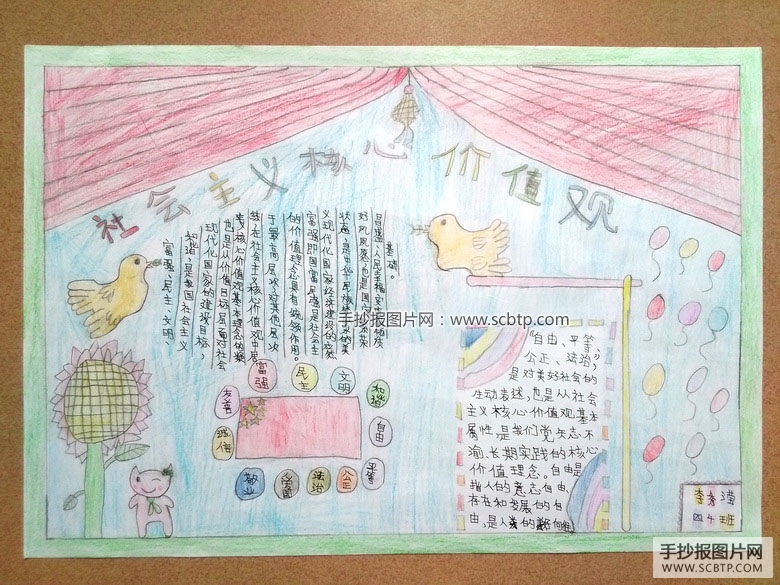 社会主义核心价值观
富强、民主、文明
和谐,是我国社会主义
现代化国家的建设目标,
也是从价值目标层面对社会
主义核心价值观基本理念的凝
练,在社会主义核心价值观中居
于最高层次,对其他层次
的价值理念具有统领作用。
富强即国富民强,是社会主
义现代化国家经济建设的应然
状态,是中华民族梦寐以求的美
好夙愿,也是国家繁荣
昌盛、人民幸福安康的物质
基础。
手抄报图片网:www.scbtp.com
“自由、平等、
公正、法治”,
是对美好社会的
生动表述,也是从社会
主义核心价值观基本
属性,是我们党矢志不
渝、长期实践的核心
价值理念。自由是
指人的意志自由、
存在和发展的自
由,是人类的
富强
民主
文明
和谐
自由
平等
公正
法治
爱国
敬业
诚信
友善
四年班
手抄报图片网
WWW.SCBTP.COM